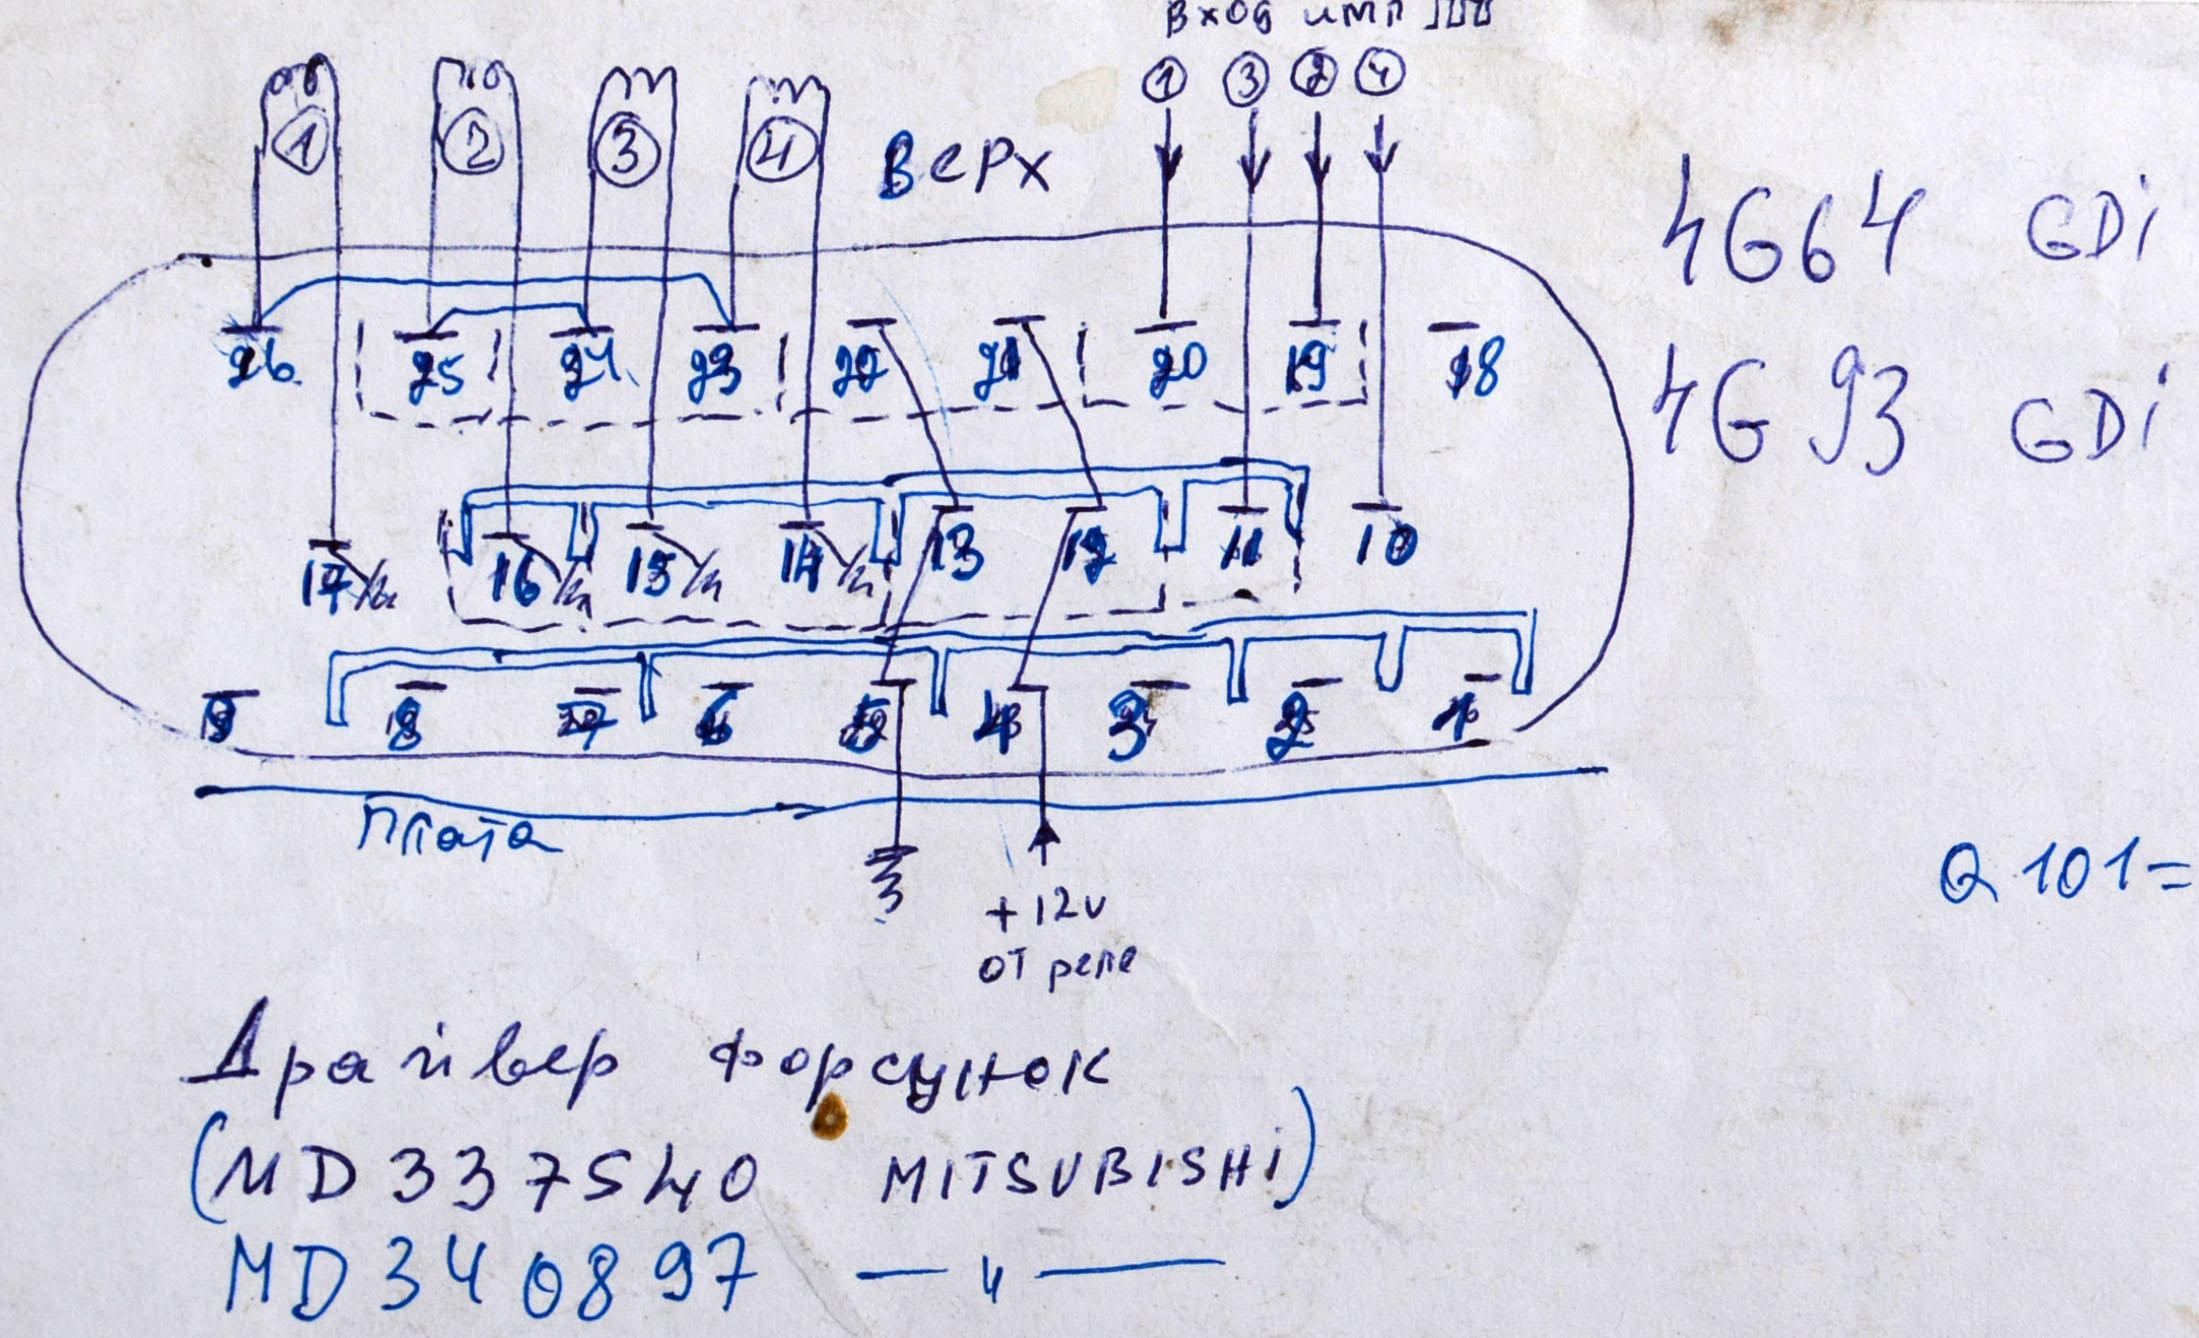 вход имп
① ③ ② ④
① ② ③ ④ Верх
4G64 GDi
26 25 24 23 22 21 20 19 18
4G93 GDi
17 16 15 14 13 12 11 10
9 8 7 6 5 4 3 2 1
плата
Q101=
+12v
от реле
Драйвер форсунок
(MD337540 MITSUBISHi)
MD340897 — 〃 —